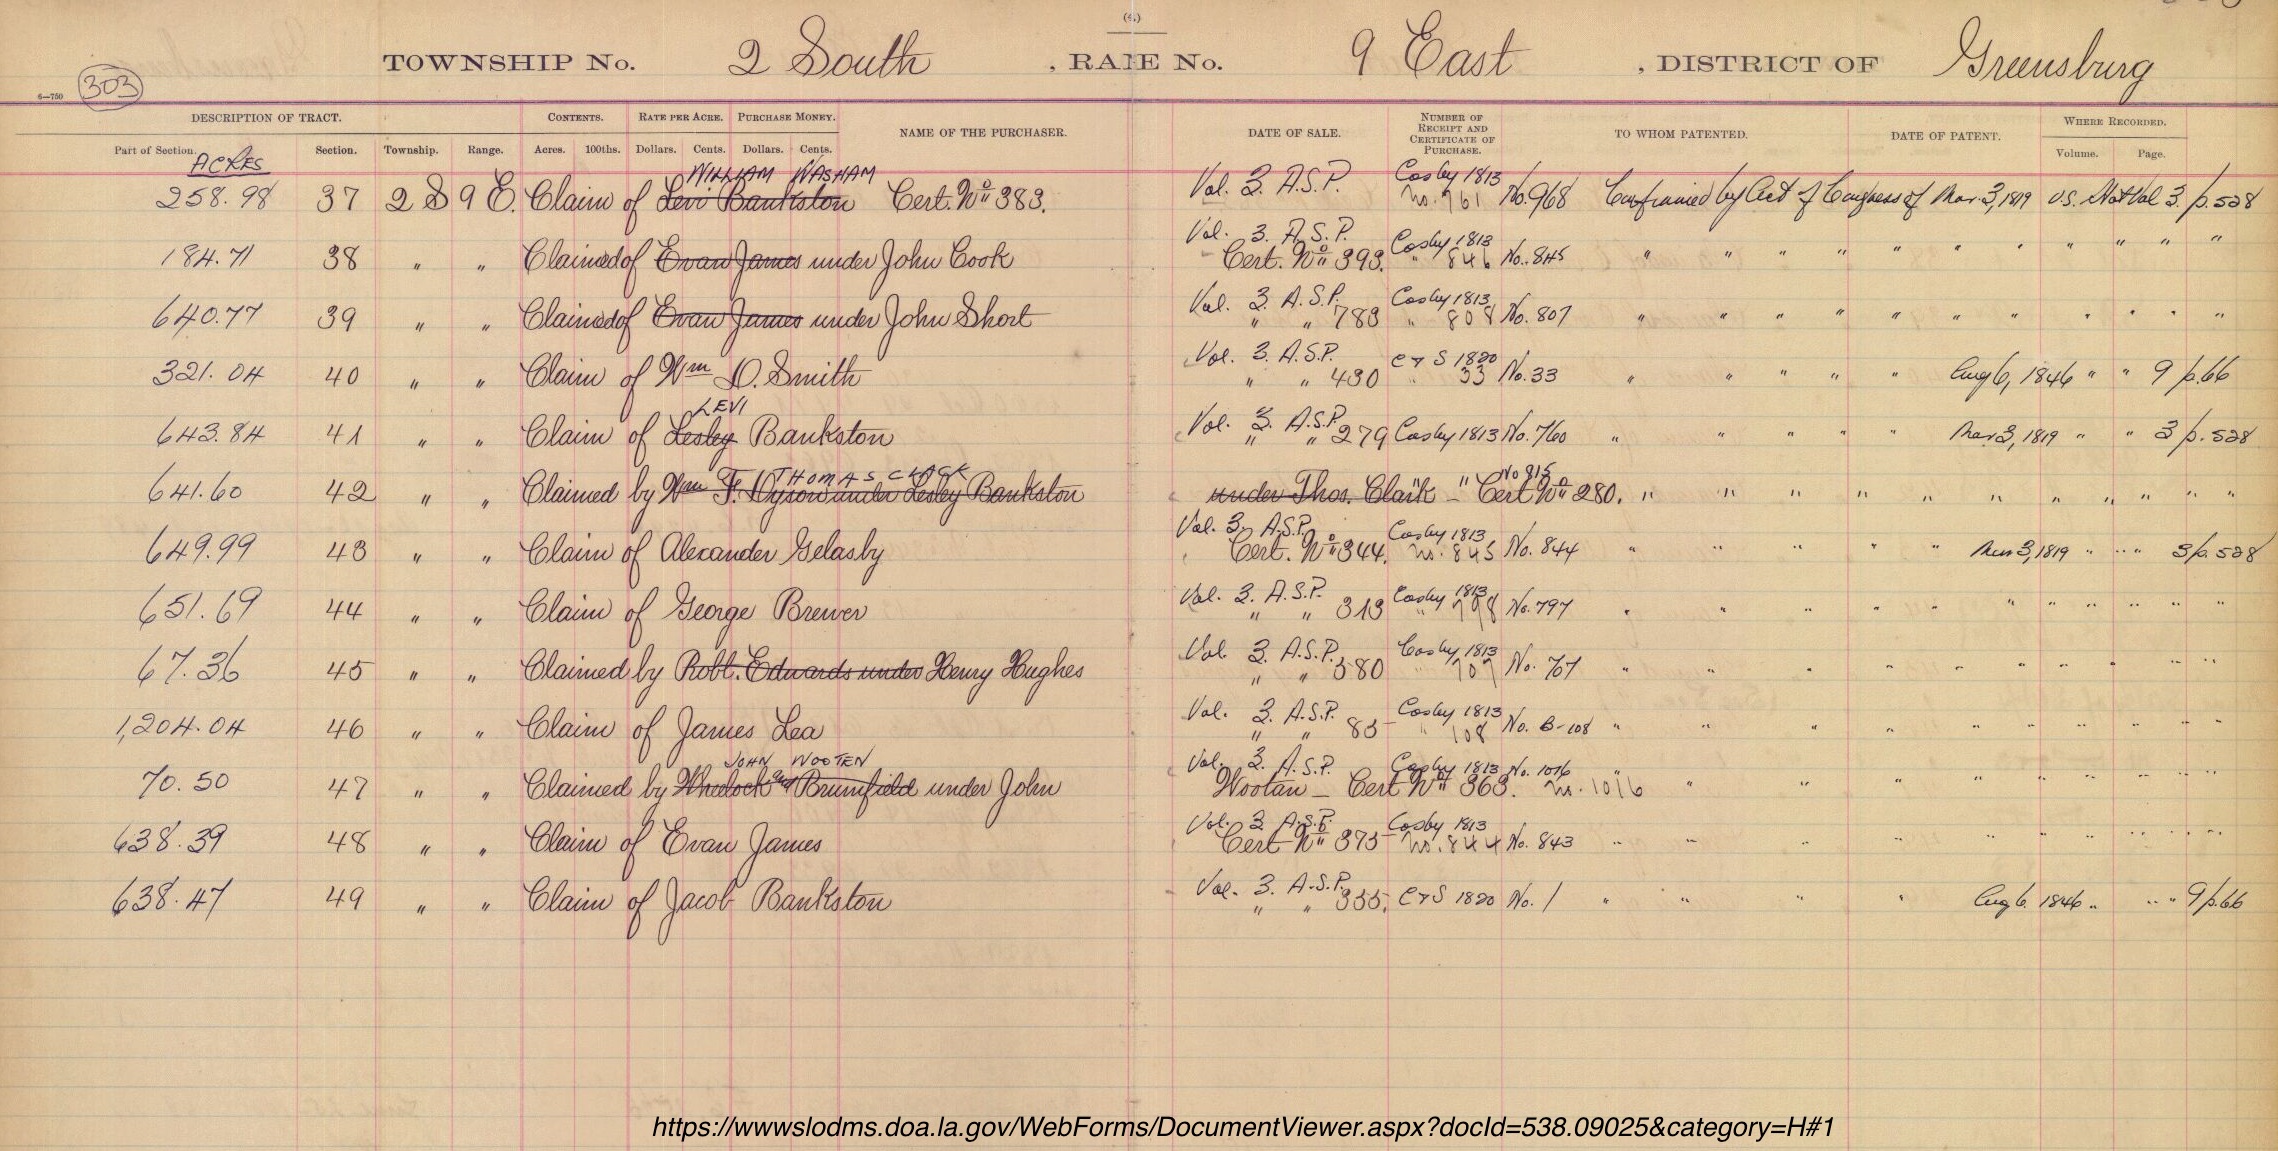 (4)
TOWNSHIP No. 2 South, RANGE No. 9 East, DISTRICT OF Greensburg
6—750
303
DESCRIPTION OF TRACT. CONTENTS. RATE PER ACRE. PURCHASE MONEY. NAME OF THE PURCHASER. DATE OF SALE. NUMBER OF RECEIPT AND CERTIFICATE OF PURCHASE. TO WHOM PATENTED. DATE OF PATENT. WHERE RECORDED.
Part of Section. Section. Township. Range. Acres. 100ths. Dollars. Cents. Dollars. Cents. Volume. Page.
ACRES
WILLIAM WASHAM Vol. 3. A.S.P. Cosby 1813
258.98 37 2 S 9 E. Claim of Levi Bankston Cert. No 383. No. 961 No. 968 Confirmed by Act of Congress of Mar. 3, 1819 U.S. Stat Vol 3. p. 528
Vol. 3. A.S.P. Cosby 1813
184.71 38 " " Claimed of Evan James under John Cook Cert. No 393. " 846 No. 845 " " " " " " " " " " "
Vol. 3. A.S.P. Cosby 1813
640.77 39 " " Claimed of Evan James under John Short " " 783 " 808 No. 807 " " " " " " " " " " "
Vol. 3. A.S.P. C & S 1820
321.04 40 " " Claim of Wm D. Smith " " 430 " 33 No. 33 " " " " " Aug 6, 1846 " " 9 p. 66
LEVI Vol. 3. A.S.P.
643.84 41 " " Claim of Lesley Bankston " " 279 Cosby 1813 No. 760 " " " " " Mar 3, 1819 " " 3 p. 528
THOMAS CLACK No 815
641.60 42 " " Claimed by Wm F. Dyson under Lesley Bankston under Thos. Clark — " Cert No 280. " " " " " " " " " " "
Vol. 3. A.S.P. Cosby 1813
649.99 43 " " Claim of Alexander Gelasby Cert. No 344. No. 845 No. 844 " " " " " Mar 3, 1819 " " " 3 p. 528
Vol. 3. A.S.P. Cosby 1813
651.69 44 " " Claim of George Brewer " " 313 " 798 No. 797 " " " " " " " " " " "
Vol. 3. A.S.P. Cosby 1813
67.36 45 " " Claimed by Robt. Edwards under Henry Hughes " " 380 " 707 No. 707 " " " " " " " " " "
Vol. 3. A.S.P. Cosby 1813
1,204.04 46 " " Claim of James Lea " " 85 " 108 No. B-108 " " " " " " " " "
JOHN WOOTEN Vol. 3. A.S.P. Cosby 1813 No. 1016 "
70.50 47 " " Claimed by Wheelock and Brumfield under John Wootan — Cert No 363. No. 1016 " " " " " " " "
Vol. 3 A.S.P. Cosby 1813
638.39 48 " " Claim of Evan James Cert No 375 No. 844 No. 843 " " " " " " " "
Vol. 3. A.S.P.
638.47 49 " " Claim of Jacob Bankston " " 355. C & S 1820 No. 1 " " " " Aug 6. 1846 " " " 9 p. 66
https://wwwslodms.doa.la.gov/WebForms/DocumentViewer.aspx?docId=538.09025&category=H#1